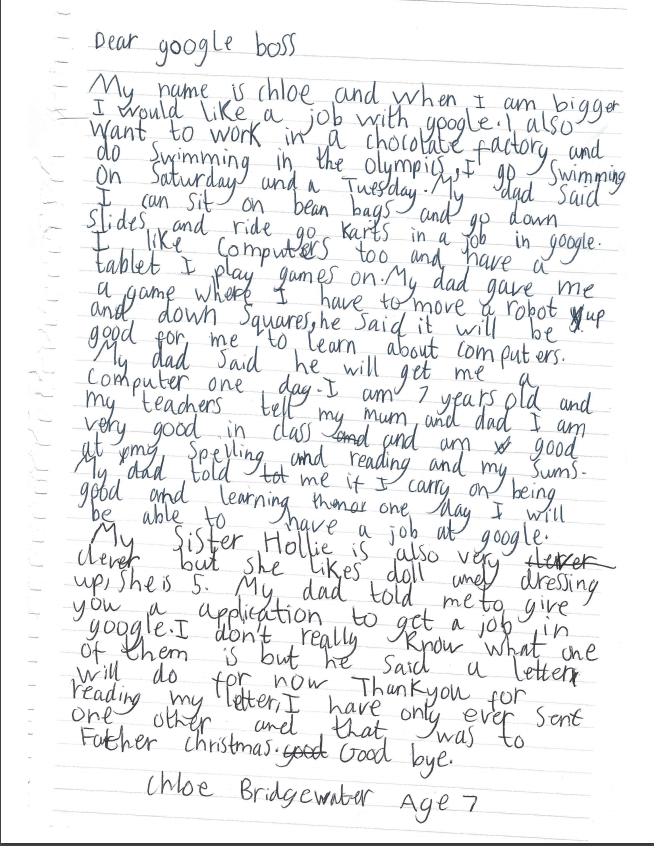 Dear google boss
My name is chloe and when I am bigger
I would like a job with google. I also
want to work in a chocolate factory and
do Swimming in the olympics, I go Swimming
on Saturday and a Tuesday. My dad Said
I can sit on bean bags and go down
slides and ride go karts in a job in google.
I like computers too and have a
tablet I play games on. My dad gave me
a game where I have to move a robot up
and down Squares, he Said it will be
good for me to learn about computers.
My dad said he will get me a
computer one day. I am 7 years old and
my teachers tell my mum and dad I am
very good in class and and am good
at my Spelling and reading and my Sums.
My dad told me if I carry on being
good and learning one day I will
be able to have a job at google.
My Sister Hollie is also very clever
clever but she likes doll and dressing
up, She is 5. My dad told me to give
you a application to get a job in
google. I don't really know what one
of them is but he said a letter
will do for now Thankyou for
reading my letter, I have only ever sent
one other and that was to
Father christmas. good Good bye.
Chloe Bridgewater Age 7